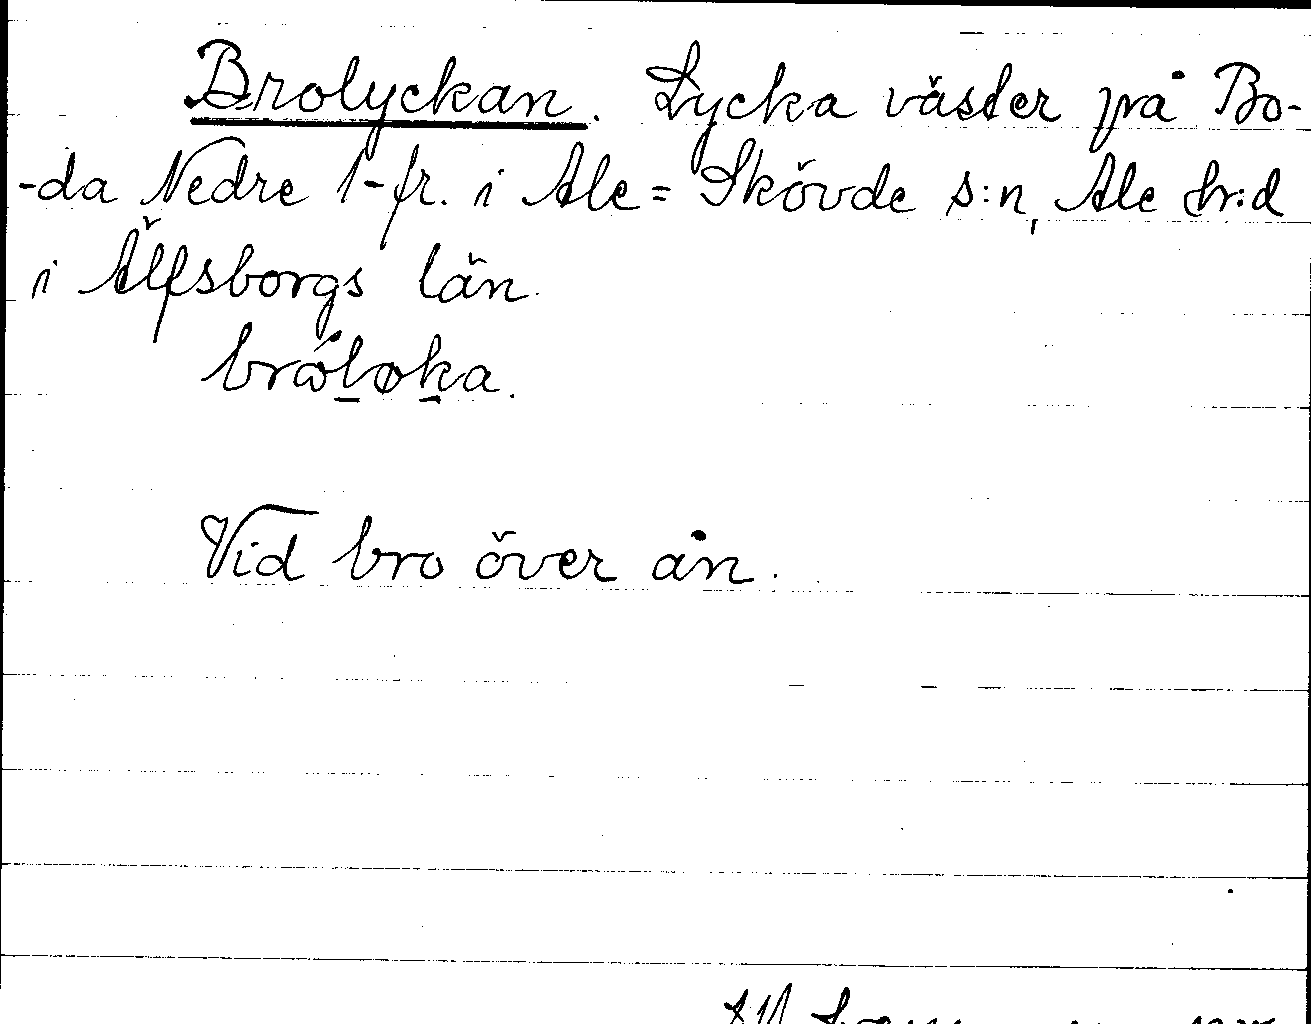 Brolyckan. Lycka väster på Bo-
-da Nedre 1-fr. i Ale=Skövde s:n, Ale hr:d
i Älfsborgs län.
bról̠øk̠a.
Vid bro över ån.